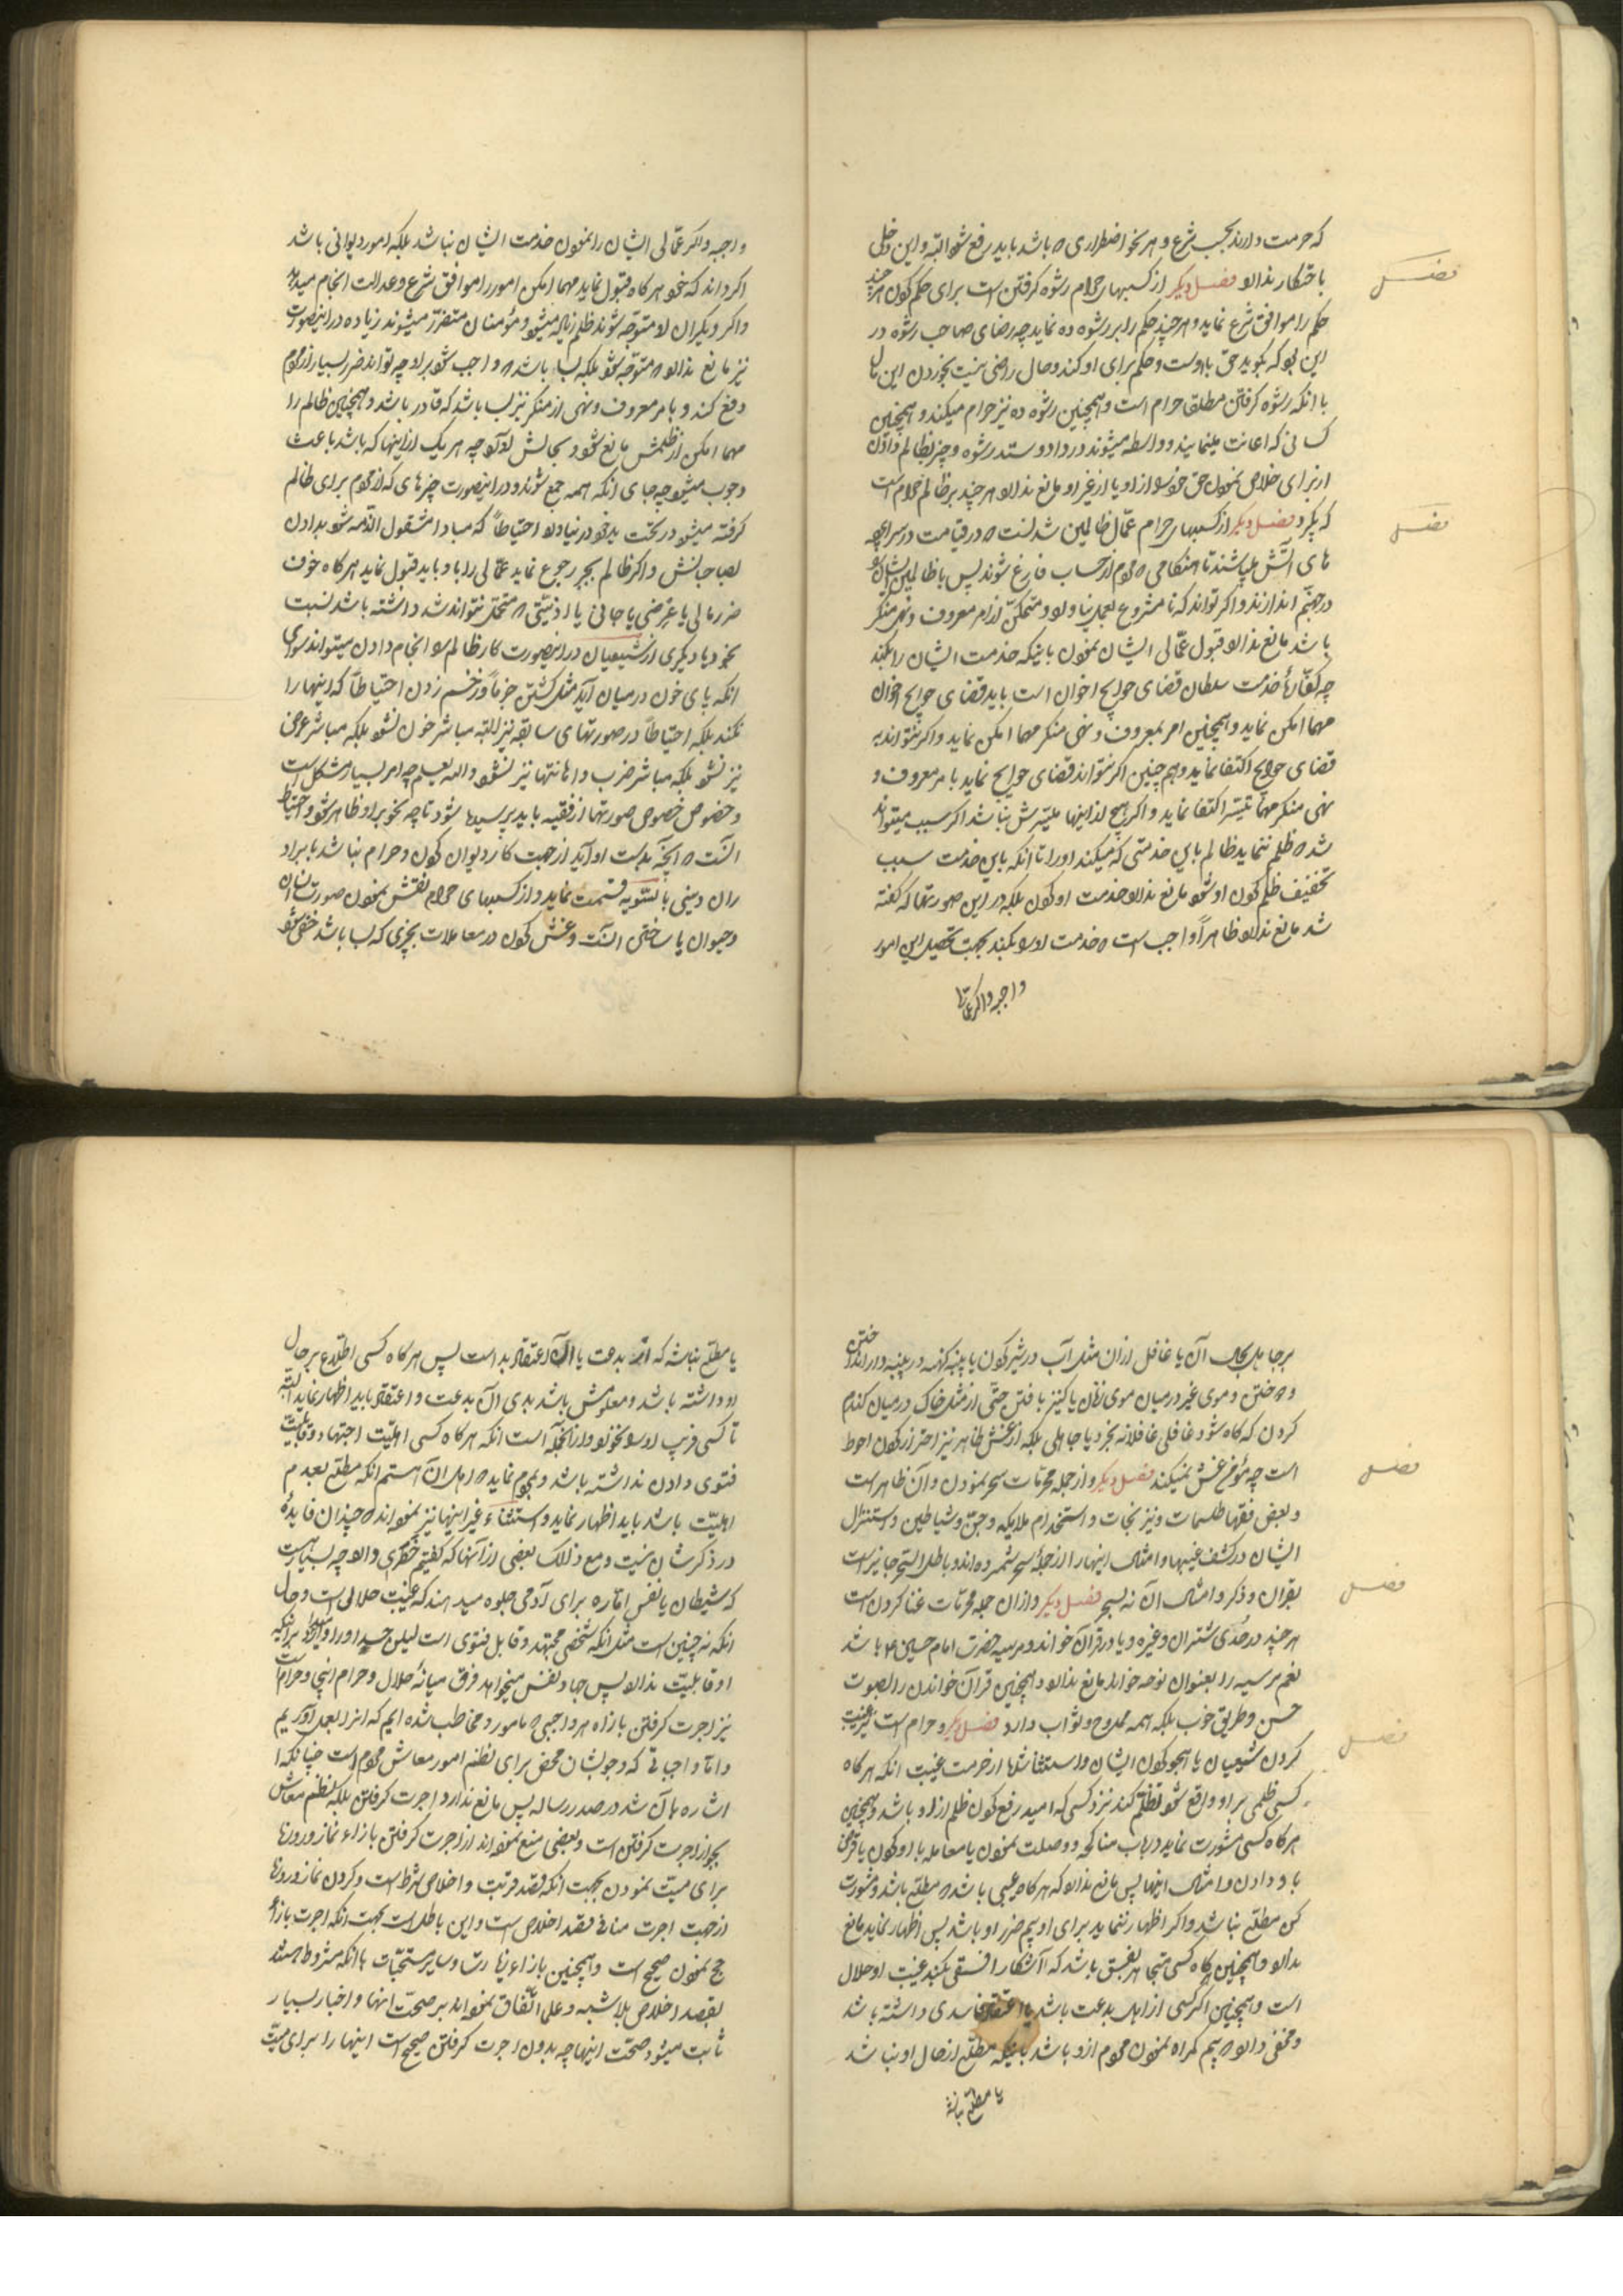 که حرمت دارند بحسب شرع و هر نحو اضطراری که باشد باید رفع شود البته و این دخلی
باحتکار ندارد فصل دیگر از کسبهای حرام رشوه کرفتن است برای حکم کردن هر چند
حکم را موافق شرع نماید و هر چند حکم را بر رشوه ده نماید چه رضای صاحب رشوه در
این بود که بکوید حق با اوست و حکم برای او کند و حال راضی نیست بخوردن این مال
با انکه رشوه کرفتن مطلقا حرام است و همچنین رشوه ده نیز حرام میکند و همچنین
کسانی که اعانت مینمایند و واسطه میشوند در داد و ستد رشوه و چیز بظالم دادن
از برای خلاص نمودن حق خود را از او یا از غیر او مانع ندارد هر چند بر ظالم حرام است
که بکیرد فصل دیکر از کسبهای حرام عمّال ظالمین شدنست که در قیامت در سراپرده
های آتش میباشند تا هنکامی که مردم از حساب فارغ شوند پس با ظالمین ایشان را
در جهنّم اندازند و اکر تواند که نامشروع بعمل نیاورد و متمکّن از امر معروف و نهی منکر
باشد مانع ندارد قبول عمّالی ایشان نمودن باینکه خدمت ایشان را بکند
چه کفّارهٔ خدمت سلطان قضای حوایج اخوان است باید قضای حوایج اخوان
مهما امکن نماید و همچنین امر بمعروف و نهی منکر مهما امکن نماید و اکر نتواند به
قضای حوایج اکتفا نماید و هم چنین اکر نتواند قضای حوایج نماید بامر معروف و
نهی منکر مهما تیسّر اکتفا نماید و اکر هیچ از اینها میسّرش نباشد اکر سبب میتواند
شد که ظلم ننماید ظالم باین خدمتی که میکند او را تا انکه باین خدمت سبب
تخفیف ظلم کردن او شود مانع ندارد خدمت او کردن بلکه در این صورتها که کفته
شد مانع ندارد ظاهراً واجب است که خدمت او را بکند بجهت تحصیل این امور
واجبه و اکر عمّالی
فصل
فصل
واجبه و اکر عمّالی ایشان را نمودن خدمت ایشان نباشد بلکه امور دیوانی باشد
اکر داند که خود هر کاه قبول نماید مهما امکن امور را موافق شرع و عدالت انجام میدهد
و اکر دیکران را متوجّه شوند ظلم زیاد میشود و مؤمنان متضرّر میشوند زیاده در اینصورت
نیز مانع ندارد که متوجّه شود بلکه بسا باشد که واجب شود بر او چه تواند ضرر بسیار از مردم
دفع کند و بامر معروف و نهی از منکر نیز بسا باشد که قادر باشد و همچنین ظالم را
مهما امکن از ظلمش مانع شود و بحالش آورد چه هر یک از اینها که باشد باعث
وجوب میشود چه جای انکه همه جمع شوند و در اینصورت چیزهای که از مردم برای ظالم
کرفته میشود در تحت ید خود در نیاورد احتیاطاً که مبادا مشغول الذمّه شود بدادن
بصاحبانش و اکر ظالم بجبر رجوع نماید عمّالی را باو باید قبول نماید هر کاه خوف
ضرر مالی یا عرضی یا جانی یا اذیّتی که متحمّل نتواند شد داشته باشد نسبت
بخود یا دیکری از شیعیان در اینصورت کار ظالم را انجام دادن میتواند سوای
انکه پای خون در میان آید مثل کشتن جزماً و زخم زدن احتیاطاً که اینها را
نکند بلکه احتیاطاً در صورتهای سابقه نیز البته مباشر خون نشود بلکه مباشر عرض
نیز نشود بلکه مباشر ضرب و اهانتها نیز نشود واللّه یعلم چه امر بسیار مشکل است
و خصوص خصوص صورتها از فقیه باید پرسید تا چه نحو بر او ظاهر شود و احتیاط
انست که آنچه بدست او آید از جهت کار دیوان کردن و حرام نباشد با برادران
دینی بالسّویه قسمت نماید و از کسبهای حرام نقش نمودن صورت انسان
و حیوان یا ساختن انست و غش کردن در معاملات بچیزی که بسا باشد خفی شود
بر جاهل بحال آن یا غافل از ان مثل آب در شیر کردن یا پنبه کهنه در پنبه دار انداختن
و موی غیر در میان موی زنان یا کنیز بافتن حتّی از مثل خاک در میان کندم
کردن که کاه شود غافلی غافلانه بخرد یا جاهلی بلکه از غش ظاهر نیز احتراز کردن احوط
است چه مؤمن غش نمیکند فصل دیکر و از جمله محرّمات سحر نمودن و آن ظاهر است
و بعض فقها طلسمات و نیرنجات و استخدام ملایکه و جنّ و شیاطین و استنزال
ایشان در کشف غیبها و امثال اینها را از جملهٔ سحر شمرده‌اند و باطل السّحر جایز است
بقران و ذکر و امثال آن نه بسحر فصل دیکر و از ان جمله محرّمات غنا کردن است
هر چند در حدی شتران و غیره و یا در قرآن خواندن و مرسیه حضرت امام حسین ع باشد
نعم مرسیه را بعنوان نوحه خواند مانع ندارد و همچنین قرآن خواندن را بصوت
حسن و طریق خوب بلکه همه ممدوح و ثواب دارد فصل دیکر و حرام است نیز غیبت
کردن شیعیان یا هجو کردن ایشان و استثنا شده از حرمت غیبت انکه هر کاه
کسی ظلمی بر او واقع شود تظلّم کند نزد کسی که امید رفع کردن ظلم از او باشد و همچنین
هر کاه کسی مشورت نماید در باب مناکحه و وصلت نمودن یا معامله با او کردن یا قرض
باو دادن و امثال اینها پس مانع ندارد که هر کاه عیبی باشد که مطلع باشد و مشورت
کن مطلع نباشد و اکر اظهار ننماید برای او بیم ضرر او باشد پس اظهار نماید مانع
ندارد و همچنین کاه کسی متجاهر بفسق باشد که آشکارا فسقی بکند غیبت او حلال
است و همچنین اکر کسی از اهل بدعت باشد یا اعتقاد فاسدی داشته باشد
و مخفی دارد که بیم کمراه نمودن مردم ازو باشد باینکه مطلع از حال او نباشد
یا مطلع نباشد
فصل
فصل
فصل
یا مطلع نباشد که ان بدعت یا ان اعتقاد بد است پس هر کاه کسی اطّلاع بر حال
او داشته باشد و معلومش باشد بدی آن بدعت و اعتقاد باید اظهار نماید البته
تا کسی فریب او را نخورد و از انجمله آست انکه هر کاه کسی اهلیّت اجتهاد و قابلیّت
فتوی دادن نداشته باشد و بمردم نماید که اهل ان هستم انکه مطلع بعدم
اهلیّت باشد باید اظهار نماید و استثناء غیر اینها نیز نموده‌اند که چندان فایدهٔ
در ذکرشان نیست و مع ذلک بعضی از آنها که کفتیم خطری دارد چه بسیار هست
که شیطان یا نفس امّاره برای آدمی جلوه میدهند که غیبت حلالی است و حال
انکه نه چنین است مثل انکه شخصی مجتهد و قابل فتوی است لیکن حسد او را وامیدارد براینکه
او قابلیّت ندارد پس جهاد نفس میخواهد فرق میانهٔ حلال و حرام اینجا و حرام است
نیز اجرت کرفتن بازاء هر واجبی که مامور و مخاطب شده ایم که انرا بعمل آوریم
و امّا واجباتی که وجوبشان محض برای نظم امور معاش مردم است چنانکه
اشاره بآن شد در صدر رساله پس مانع ندارد اجرت کرفتن بلکه نظم معاش
بجواز اجرت کرفتن است و بعضی منع نموده‌اند از اجرت کرفتن بازاء نماز و روزه
برای میّت نمودن بجهت انکه قصد قربت و اخلاص شرط است و کردن نماز و روزه
از جهت اجرت منافی قصد اخلاص است و این باطل است بجهت انکه اجرت بازاء
حج نمودن صحیح است و همچنین بازاء زیارت و سایر مستحبّات با انکه مشروط هستند
بقصد اخلاص بلا شبهه و علما اتّفاق نموده‌اند بر صحّت انها و اخبار بسیار
ثابت میشود صحّت اینها چه بدون اجرت کرفتن صحیح است اینها را برای میّت